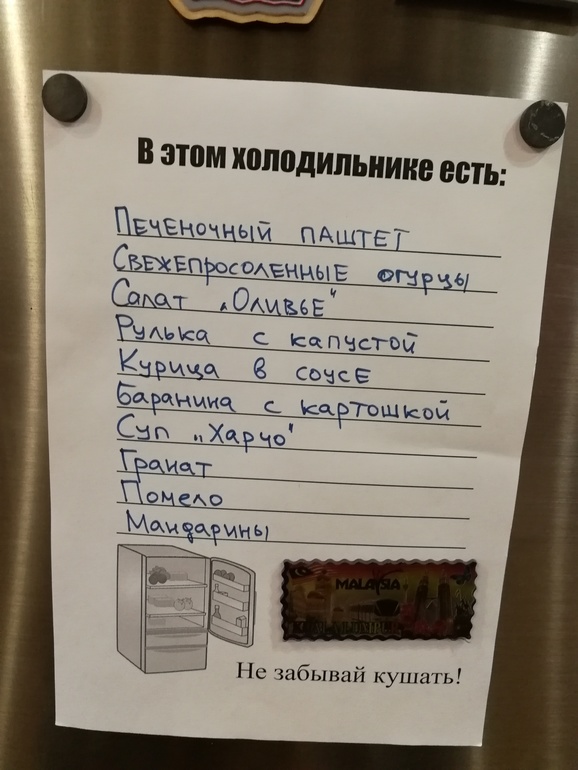 В этом холодильнике есть:
Печеночный паштет
Свежепросоленные огурцы
Салат „Оливье"
Рулька с капустой
Курица в соусе
Баранина с картошкой
Суп „Харчо"
Гранат
Помело
Мандарины
MALAYSIA
Не забывай кушать!